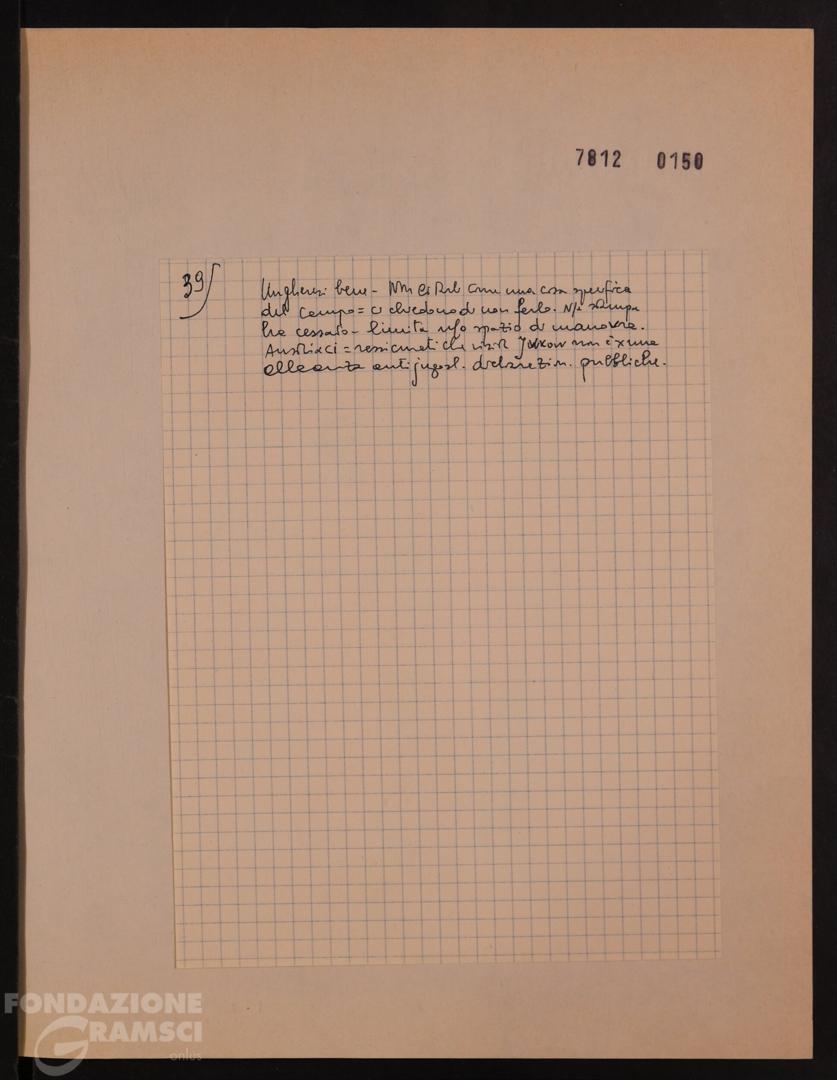 7812 0150
39
Ungheresi bene - Non come una cosa specifica
del campo = ci chiedono di non farlo. N/s stampa
ha cessato - limita n/o spazio di manovra.
Austriaci = rassicurati che visita non è x una
alleanza antijugosl. dichiarazion. pubbliche.
FONDAZIONE
GRAMSCI
onlus